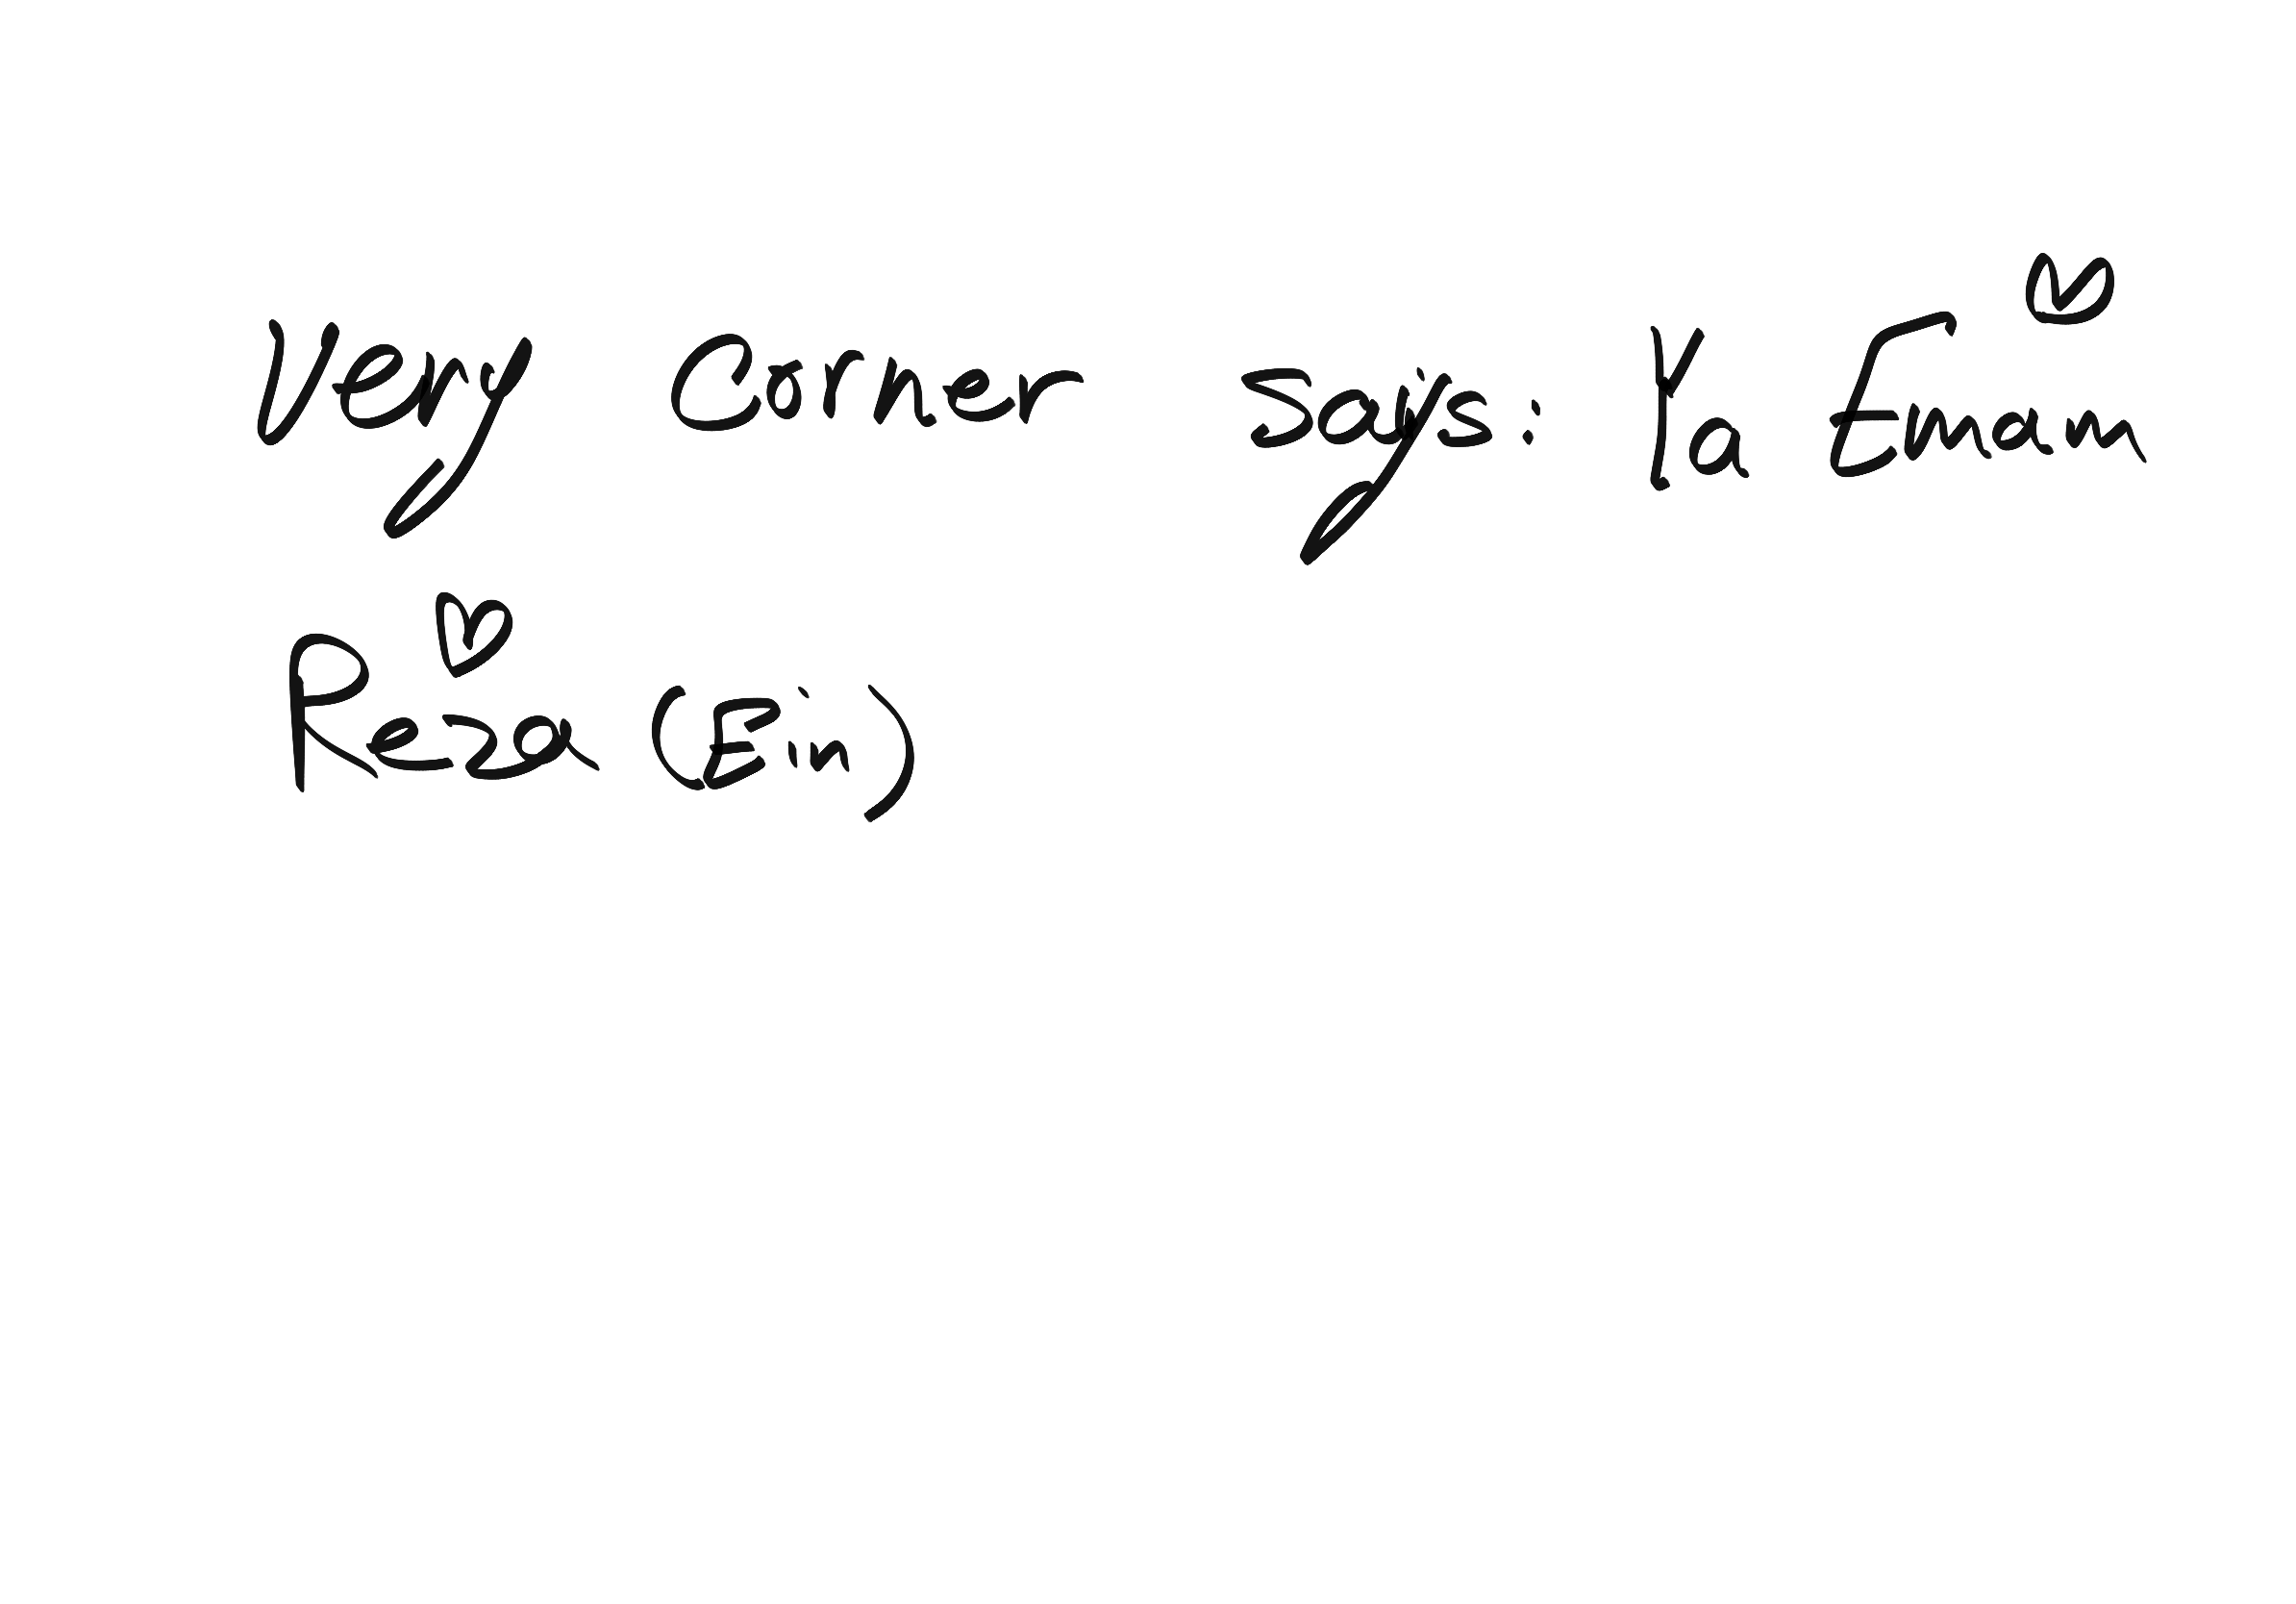 Very Corner says: Ya Emam
Reza (Ein)